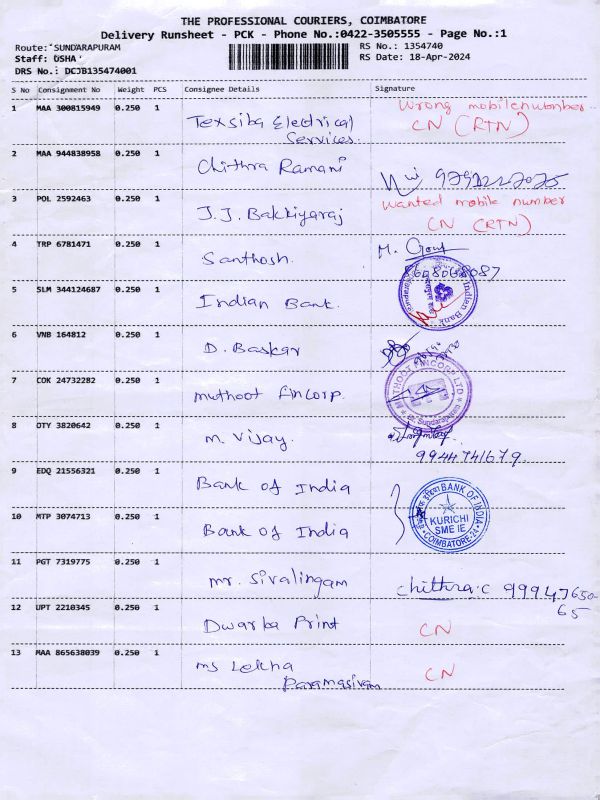 THE PROFESSIONAL COURIERS, COIMBATORE
Delivery Runsheet - PCK - Phone No.:0422-3505555 - Page No.:1
Route: SUNDARAPURAM
RS No.: 1354740
Staff: USHA
RS Date: 18-Apr-2024
DRS No.: DCJB135474001
S No Consignment No Weight PCS Consignee Details Signature
1 MAA 300815949 0.250 1 Texsiba Electrical Services. Wrong mobile number
CN (RTN)
2 MAA 944838958 0.250 1 Chithra Ramani
3 POL 2592463 0.250 1 J.J. Bakkiyaraj Wanted mobile number
CN (RTN)
4 TRP 6781471 0.250 1 Santhosh. M.
8608068087
5 SLM 344124687 0.250 1 Indian Bank. Indian Bank
6 VNB 164812 0.250 1 D. Baskar
7 COK 24732282 0.250 1 Muthoot Fincorp. MUTHOOT FINCORP LTD
Sundarapuram
8 OTY 3820642 0.250 1 M. Vijay.
9944741679.
9 EDQ 21556321 0.250 1 Bank of India
10 MTP 3074713 0.250 1 Bank of India BANK OF INDIA
KURICHI
SME IE
COIMBATORE-24
11 PGT 7319775 0.250 1 mr. Sivalingam Chithra.C 9994765065
12 UPT 2210345 0.250 1 Dwarka Print CN
13 MAA 865638039 0.250 1 ms Lekha CN
Paramasivam